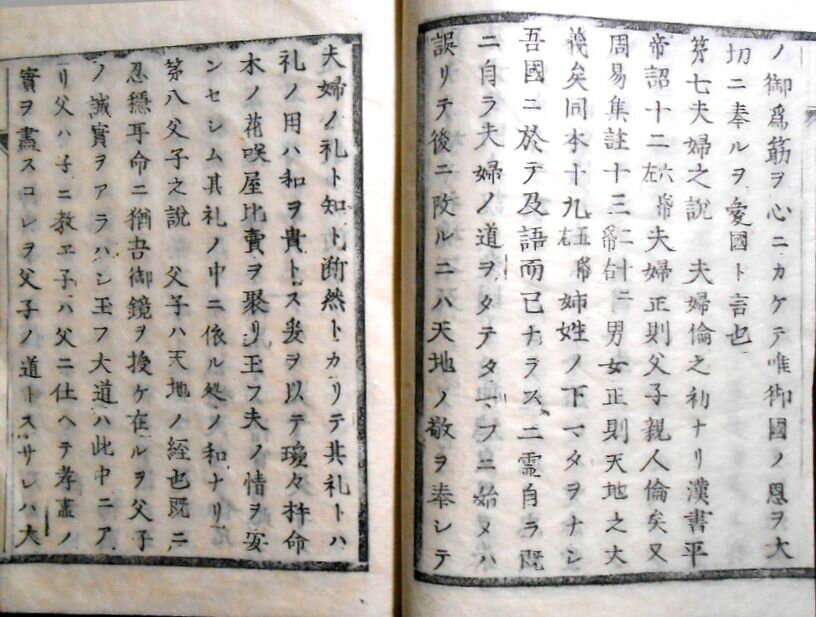 ノ御爲筋ヲ心ニカケテ唯御國ノ恩ヲ大
切ニ奉ルヲ愛國ト言也
第七夫婦之說　夫婦倫之初ナリ漢書平
帝詔十二 六帋左 夫婦正則父子親人倫矣又
周易集註十三 二十二帋右 男女正則天地之大
義矣同本十九 五帋右 姉姓ノ下マタヲナシ
吾國ニ於テ及語而已ナラス二霊自ラ既
ニ自ラ夫婦ノ道ヲタテタマフニ始メハ
誤リテ後ニ改ルニハ天地ノ敬ヲ奉シテ
夫婦ノ礼ト知ト断然トカリテ其礼トハ
礼ノ用ハ和ヲ貴トス爰ヲ以テ瓊々杵命
木ノ花咲屋比賣ヲ聚リ玉フ夫ノ情ヲ安
ンセシム其礼ノ中ニ依ル処ノ和ナリ
第八父子之說　父子ハ天地ノ経也既ニ
忍穗耳命ニ猶吾御鏡ヲ授ケ在ルヲ父子
ノ誠實ヲアラハシ玉フ大道ハ此中ニア
リ父ハ子ニ教エ子ハ父ニ仕ヘテ孝盡ノ
實ヲ盡スコレヲ父子ノ道トスサレハ大